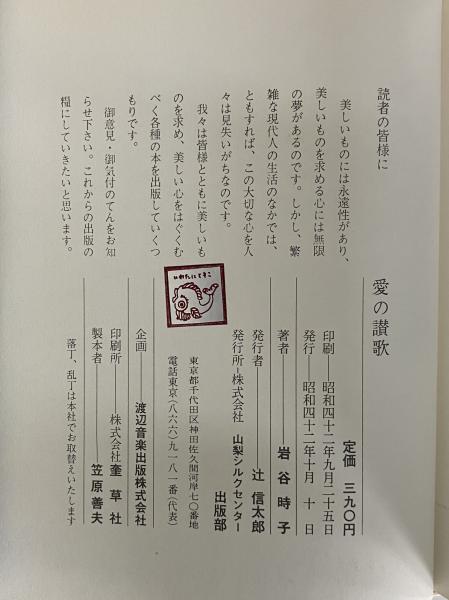 読者の皆様に
美しいものには永遠性があり、
美しいものを求める心には無限
の夢があるのです。しかし、繁
雑な現代人の生活のなかでは、
ともすれば、この大切な心を人
々は見失いがちなのです。
我々は皆様とともに美しいも
のを求め、美しい心をはぐくむ
べく各種の本を出版していくつ
もりです。
御意見・御気付のてんをお知
らせ下さい。これからの出版の
糧にしていきたいと思います。
愛の讃歌
定価 三九〇円
印刷──昭和四十二年九月二十五日
発行──昭和四十二年十月十日
著者──岩谷時子
発行者──辻信太郎
発行所─株式会社 山梨シルクセンター出版部
東京都千代田区神田佐久間河岸七〇番地
電話東京(八六六)九一八一番(代表)
いわたにときこ
企画──渡辺音楽出版株式会社
印刷所──株式会社奎草社
製本者──笠原善夫
落丁、乱丁は本社でお取替えいたします